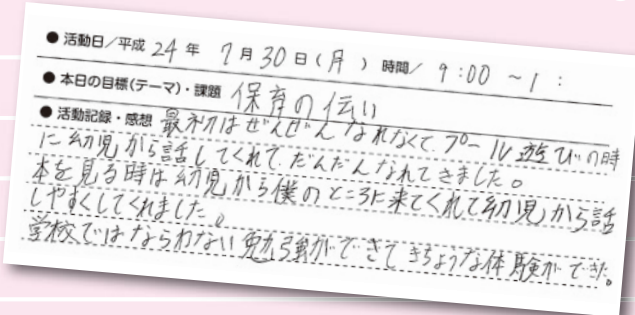 ●活動日/平成 24 年 7月 30日(月) 時間/ 9:00 ~ 1 :
●本日の目標(テーマ)・課題 保育の伝い
●活動記録・感想 最初はぜんぜんなれなくて、プール遊びの時
に幼児から話してくれて、だんだんなれてきました。
本を見る時は幼児から僕のところに来てくれて幼児から話
しやすくしてくれました。
学校ではならわない勉強ができてきちょうな体験ができた。